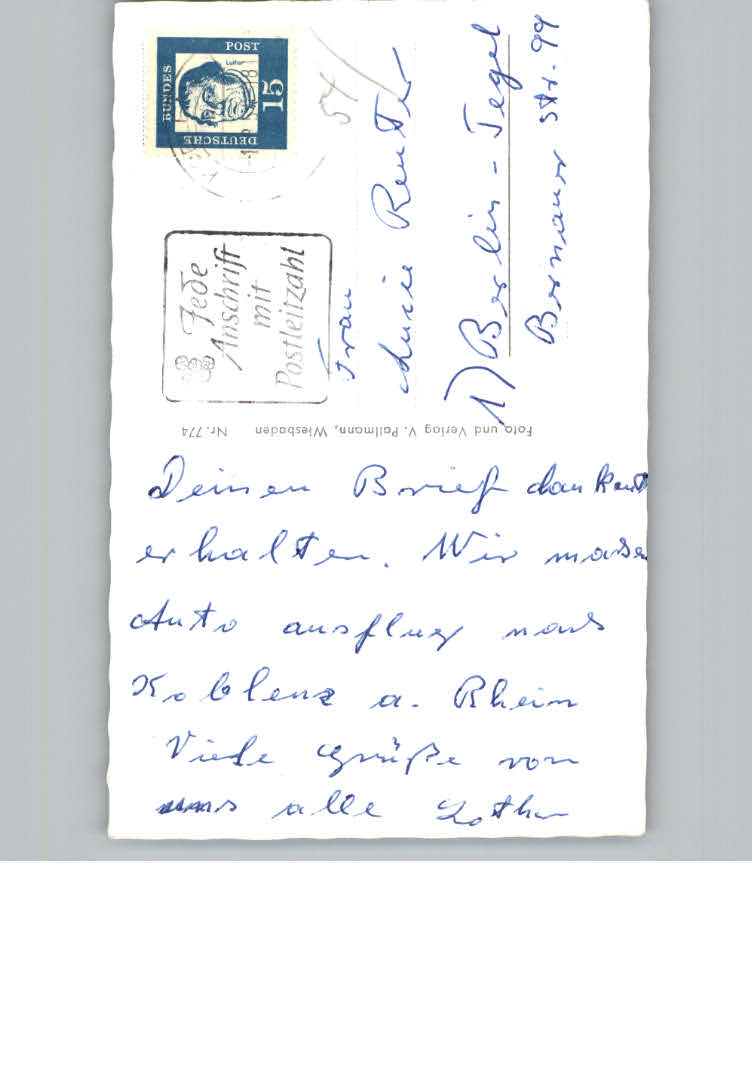 DEUTSCHE
BUNDES
POST
15
Luther
54
Jede
Anschrift
mit
Postleitzahl
Frau
Reuter
1) Berlin - Tegel
Bernauer Str. 99
Foto und Verlag V. Pallmann, Wiesbaden Nr. 774
Deinen Brief dankent
erhalten. Wir machen
Auto ausflug nach
Koblenz a. Rhein
Viele Grüße von
uns alle Lothar